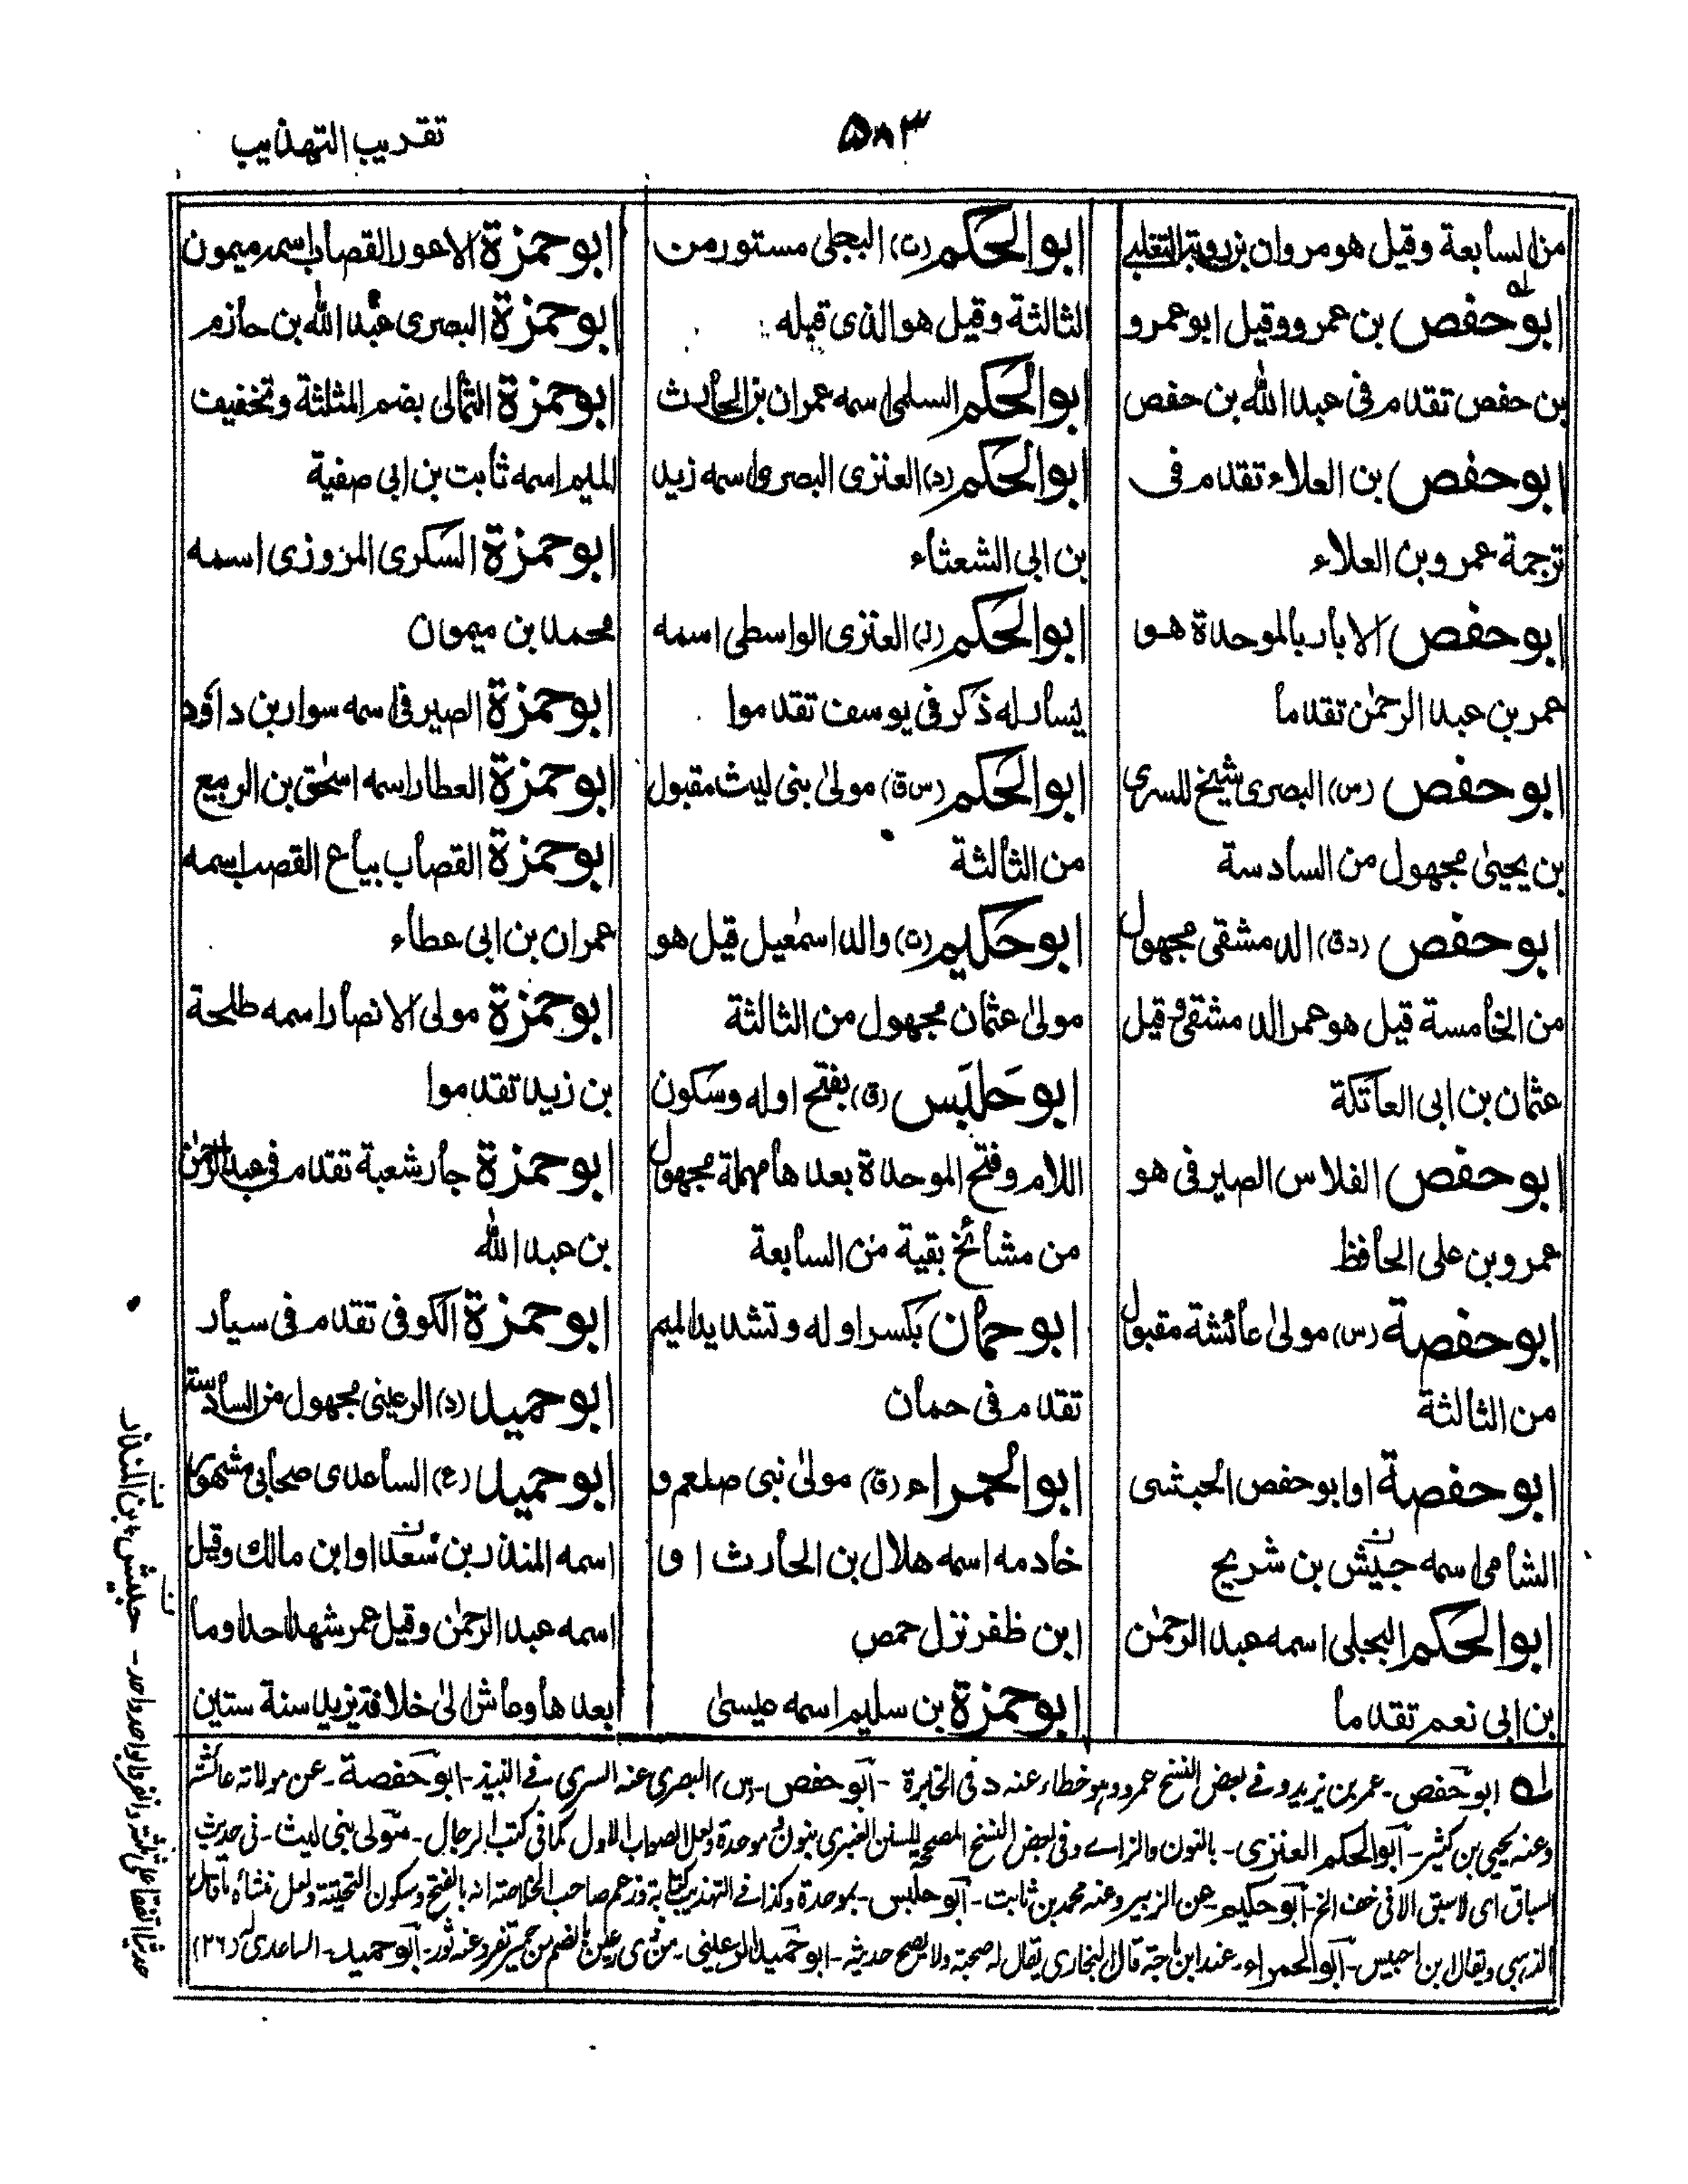 ۵۸۳
تقريب التهذيب
من السابعة وقيل هو مروان بن روبة التغلبى
ابو حفص بن عمرو وقيل ابو عمرو
بن حفص تقدم فى عبد الله بن حفص
ابو حفص بن العلاء تقدم فى
ترجمة عمرو بن العلاء
ابو حفص الابار بالموحدة هو
عمر بن عبد الرحمٰن تقدما
ابو حفص (س) البصرى شيخ للسرى
بن يحيىٰ مجهول من السادسة
ابو حفص (دق) الدمشقى مجهول
من الخامسة قيل هو عمر الدمشقى وقيل
عثمان بن ابى العاتكة
ابو حفص الفلاس الصيرفى هو
عمرو بن على الحافظ
ابو حفصة (س) مولىٰ عائشة مقبول
من الثالثة
ابو حفصة او ابو حفص الحبشى
الشامى اسمه حبيش بن شريح
ابو الحكم البجلى اسمه عبد الرحمٰن
بن ابى نعم تقدما
ابو الحكم (ت) البجلى مستور من
الثالثة وقيل هو الذى قبله
ابو الحكم السلمى اسمه عمران بن الحارث
ابو الحكم (د) العنزى البصرى اسمه زيد
بن ابى الشعثاء
ابو الحكم (د) العنزى الواسطى اسمه
يسار له ذكر فى يوسف تقدموا
ابو الحكم (س ق) مولىٰ بنى ليث مقبول
من الثالثة
ابو حكيم (ت) والد اسمٰعيل قيل هو
مولىٰ عثمان مجهول من الثالثة
ابو حَلبَس (ق) بفتح اوله وسكون
اللام وفتح الموحدة بعدها مهملة مجهول
من مشائخ بقية من السابعة
ابو حمان بكسر اوله وتشديد الميم
تقدم فى حمان
ابو الحمراء (ق) مولىٰ نبى صلعم و
خادمه اسمه هلال بن الحارث او
ابن ظفر نزل حمص
ابو حمزة بن سليم اسمه عيسىٰ
ابو حمزة الاعور القصاب اسمه ميمون
ابو حمزة البصرى عبد الله بن حازم
ابو حمزة الثمالى بضم المثلثة وتخفيف
الميم اسمه ثابت بن ابى صفية
ابو حمزة السكرى المروزى اسمه
محمد بن ميمون
ابو حمزة الصيرفى اسمه سوار بن داؤد
ابو حمزة العطار اسمه اسحٰق بن الربيع
ابو حمزة القصاب بياع القصب اسمه
عمران بن ابى عطاء
ابو حمزة مولى الانصار اسمه طلحة
بن زيد تقدموا
ابو حمزة جار شعبة تقدم فى عبد الرحمٰن
بن عبد الله
ابو حمزة الكوفى تقدم فى سيار
ابو حميد (د) الرعينى مجهول من السادسة
ابو حميد (ع) الساعدى صحابى مشهور
اسمه المنذر بن سعد او ابن مالك وقيل
اسمه عبد الرحمٰن وقيل عمر شهد احدا وما
بعدها وعاش الىٰ خلافة يزيد سنة ستين
له ابو حفص۔ عمر بن يزيد وفى بعض النسخ عمرو وهو خطاء عنه د فى المخابرة ۔ ابو حفص۔ (س) البصرى عنه السرى فى النبيذ۔ ابو حفصة۔ عن مولاته عائشة
وعنه يحيى بن كثير۔ ابو الحكم العنزى۔ بالنون والزاے وفى بعض النسخ المصححة للسنن العنبرى بنون ثم موحدة ولعل الصواب الاول كما فى كتب الرجال۔ مولى بنى ليث۔ فى حديث
السباق اى لا سبق الا فى خف الخ۔ ابو حكيم۔ عن الزبير وعنه محمد بن ثابت۔ ابو حلبس۔ بموحدة وكذا فى التهذيب كتابة وزعم صاحب الخلاصة انه بالفتح وسكون التحتية ولعل منشاه ما قال
الذهبى ويقال ابن احبيس۔ ابو الحمراء۔ عند ابن ماجة قال البخارى يقال له صحبة ولا يصح حديثه۔ ابو حميد الرعينى۔ من ذى رعين بالضم من حمير تفرد عنه ثور۔ ابو حميد۔ الساعدى له (٢٦)
حديثا اتفقا على ثلثة وانفرد بواحد واحد۔ حبيش بن المنذر